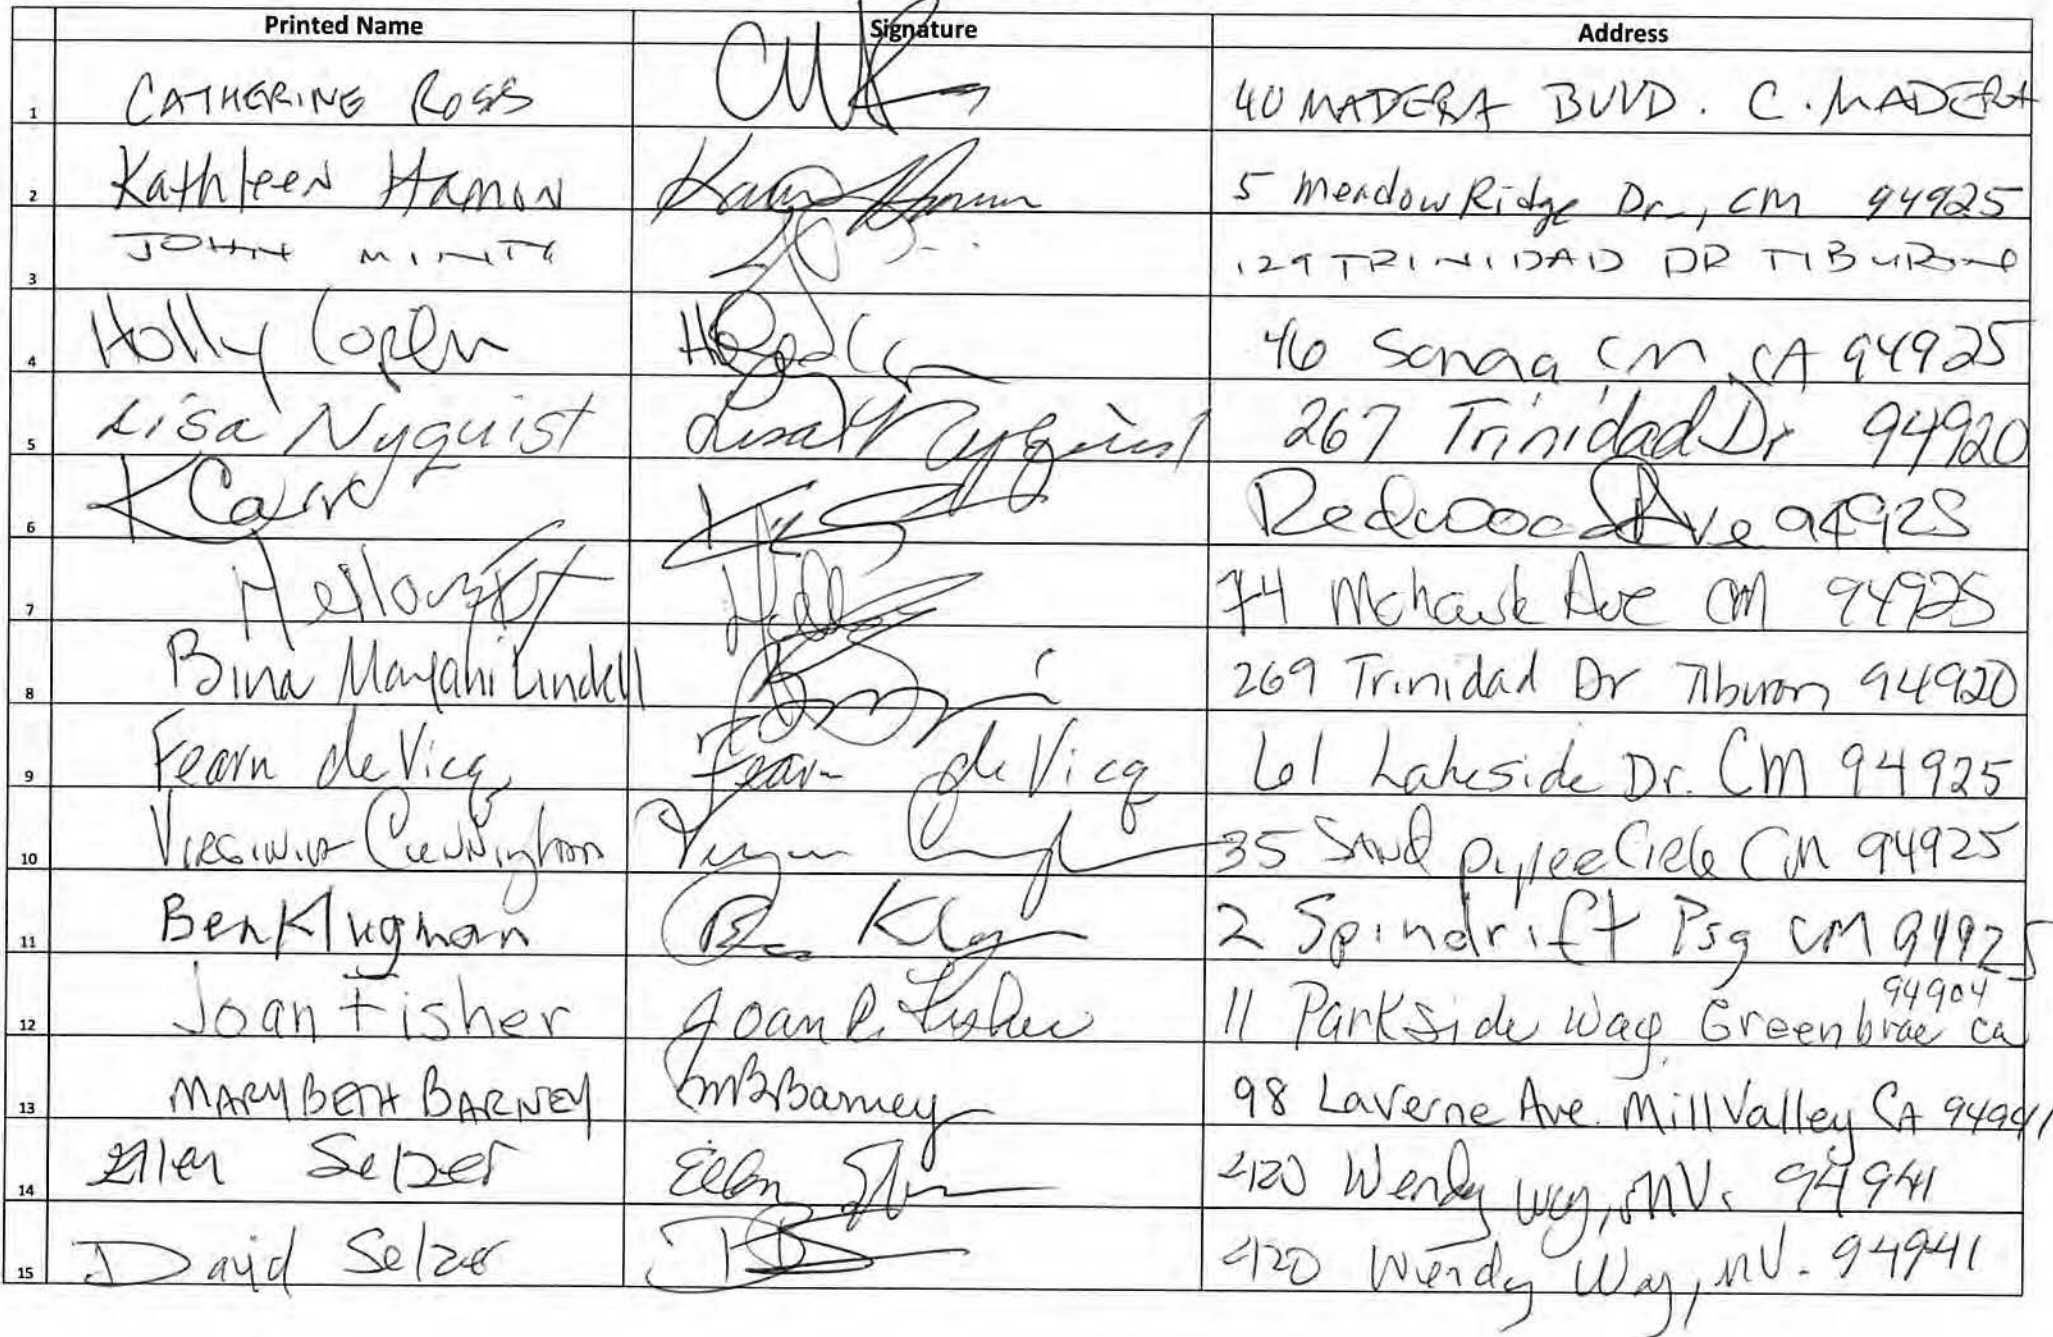 Printed Name Signature Address
1 CATHERINE ROSS 40 MADERA BLVD. C. MADERA
2 Kathleen Hamon 5 Meadow Ridge Dr., CM 94925
3 JOHN MINTY 129 TRINIDAD DR TIBURON
4 Holly Coplen 46 CM, CA 94925
5 Lisa Nyquist Lisa Nyquist 267 Trinidad Dr 94920
6 K Redwood Ave 94925
7 74 Mohawk Ave CM 94925
8 Bina Lindell 269 Trinidad Dr Tiburon 94920
9 Fearn de Vicq Fearn de Vicq 61 Lakeside Dr. CM 94925
10 Virginia Cunningham 35 Sand piper Circle CM 94925
11 Ben Klugman Ben 2 Spindrift Psg CM 94925
94904
12 Joan Fisher Joan P. Fisher 11 Parkside Way Greenbrae ca
13 MARYBETH BARNEY MBBarney 98 Laverne Ave. Mill Valley CA 94941
14 Ellen Selzer Ellen 420 Wendy Wy, MV. 94941
15 David Selzer 420 Wendy Way, MV. 94941